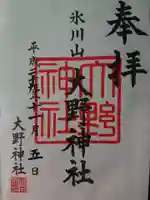 奉拝
氷川山
大野神社
大野
神社
平成二十五年十一月五日
大野神社